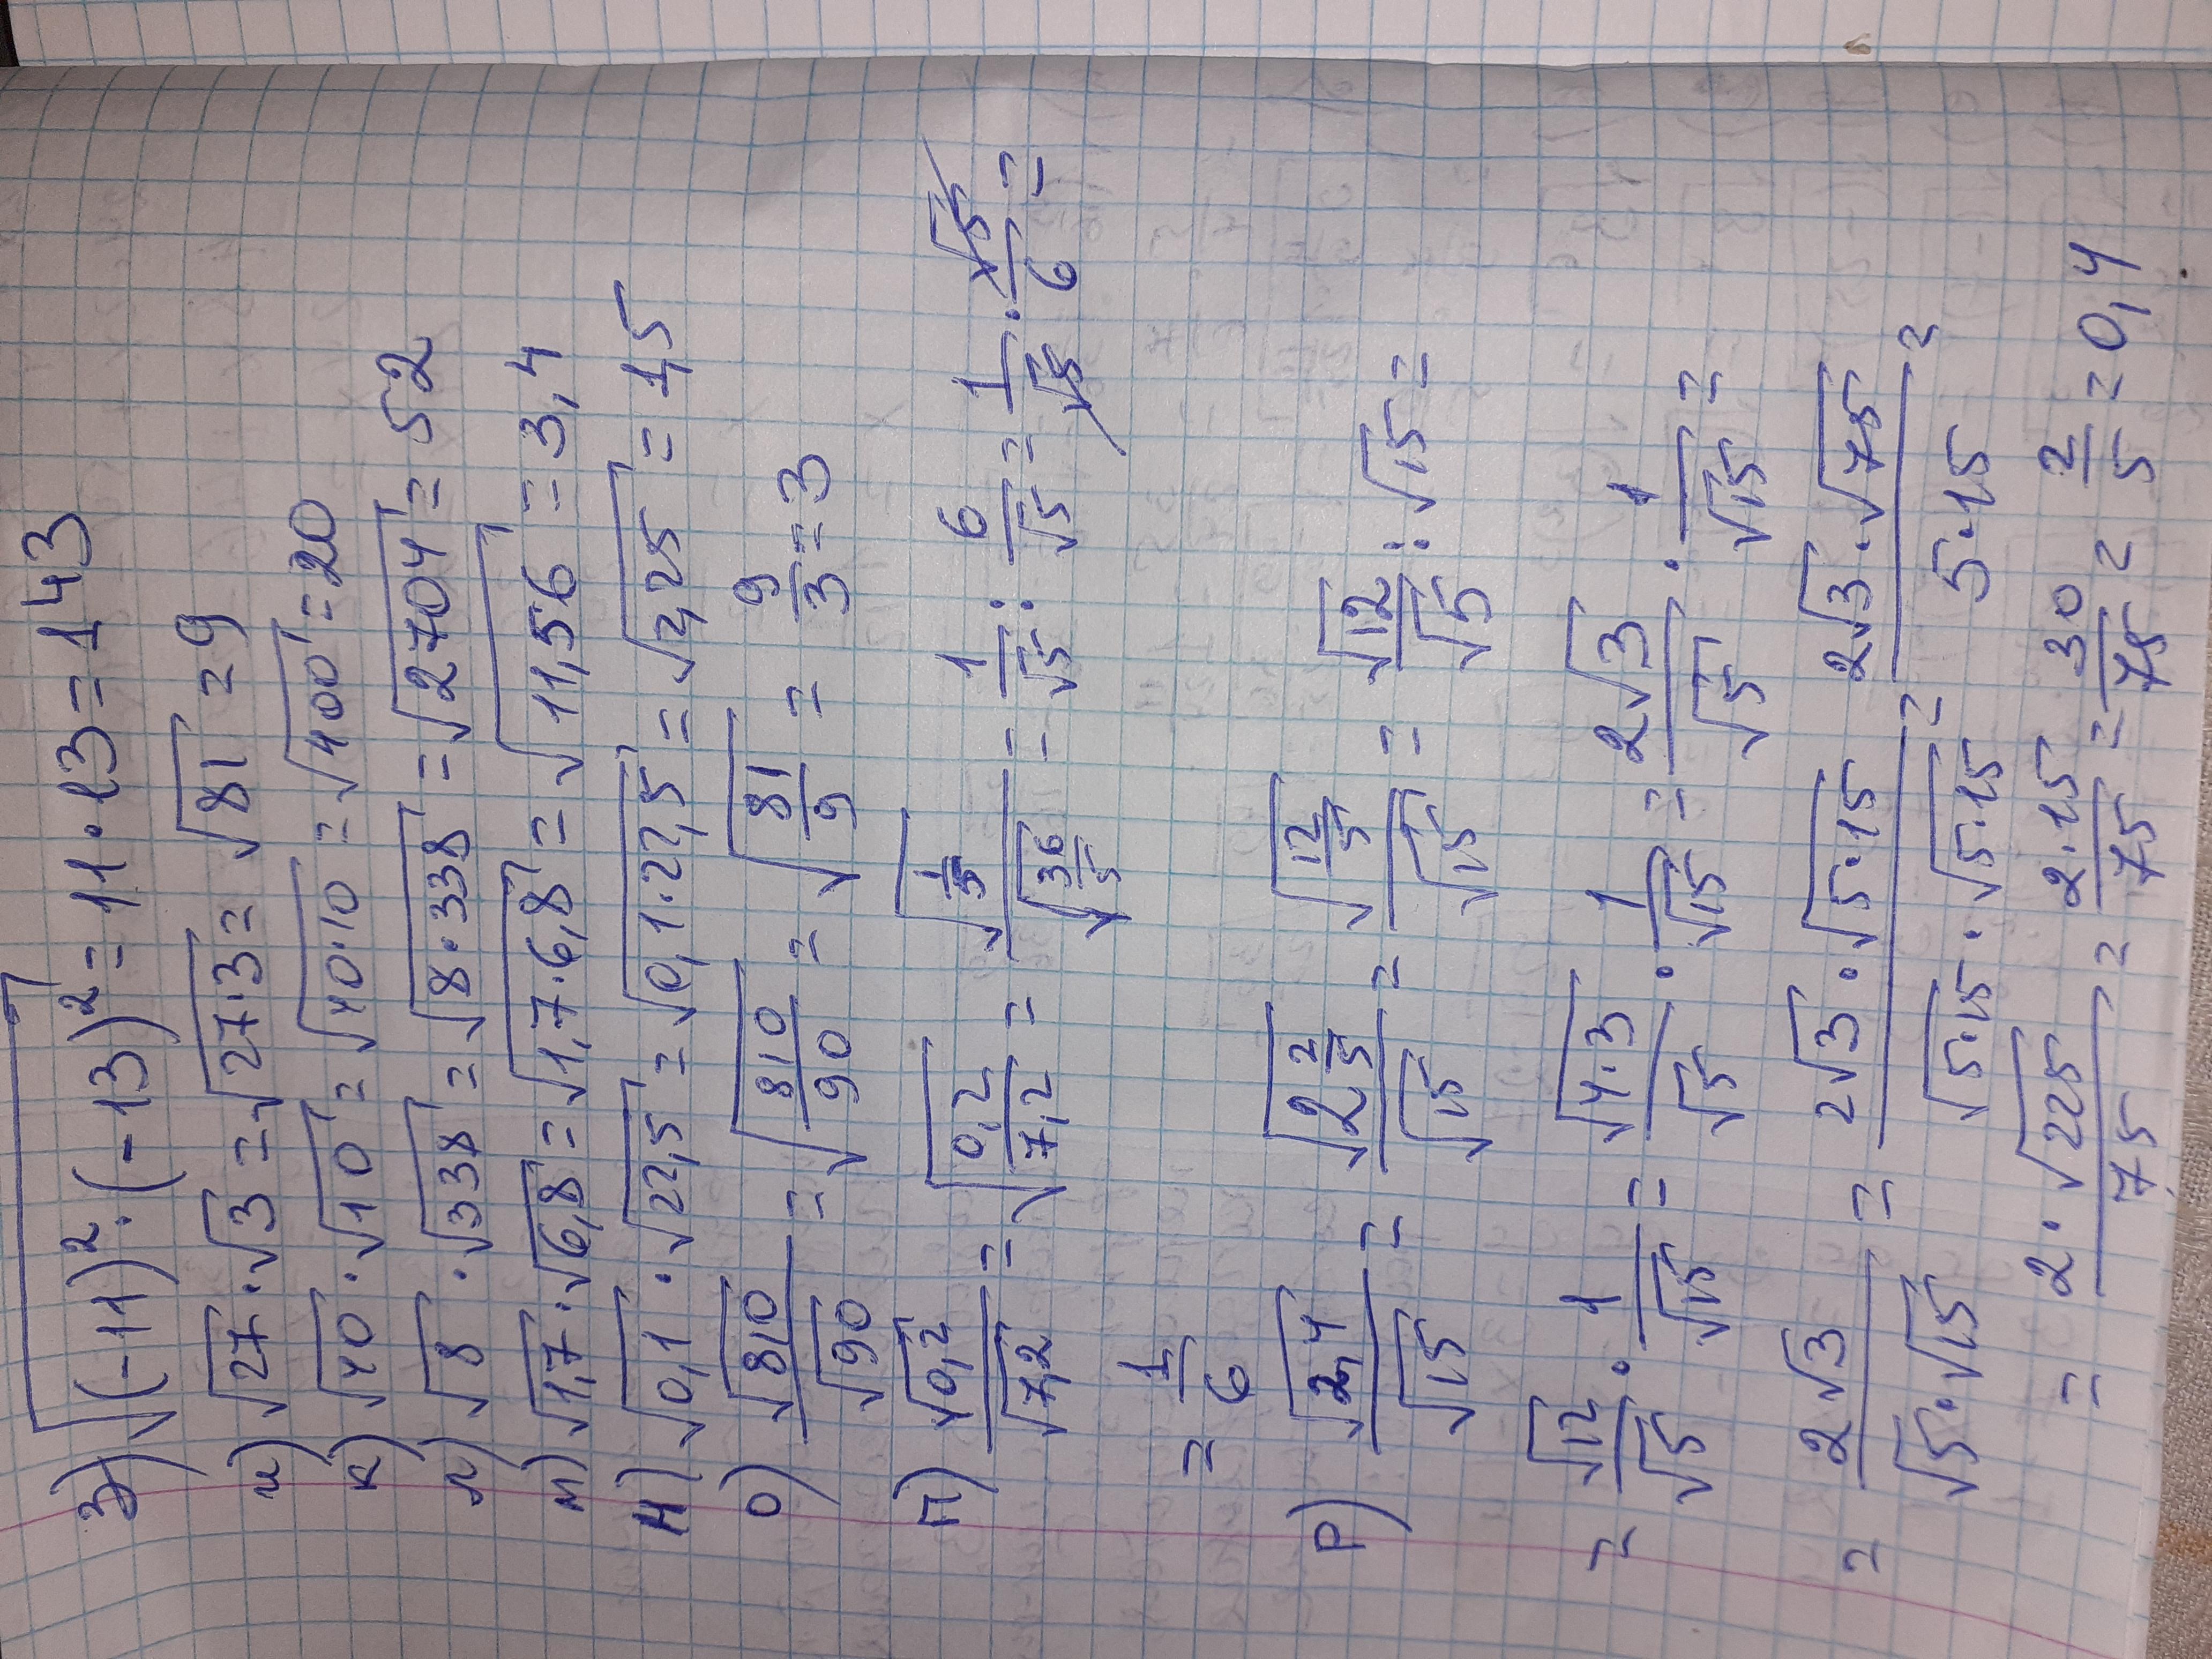 з) √((-11)²·(-13)²) = 11·13 = 143
и) √27·√3 = √(27·3) = √81 = 9
к) √40·√10 = √(40·10) = √400 = 20
л) √8·√338 = √(8·338) = √2704 = 52
м) √1,7·√6,8 = √(1,7·6,8) = √11,56 = 3,4
н) √0,1·√22,5 = √(0,1·22,5) = √2,25 = 1,5
о) √810/√90 = √(810/90) = √(81/9) = 9/3 = 3
п) √0,2/√7,2 = √(0,2/7,2) = √(1/5)/√(36/5) = 1/√5 : 6/√5 = 1/√5 · √5/6 =
= 1/6
р) √2,4/√15 = √(2 2/5)/√15 = √(12/5)/√15 = √12/√5 : √15 =
= √12/√5 · 1/√15 = √(4·3)/√5 · 1/√15 = 2√3/√5 · 1/√15 =
= 2√3/(√5·√15) = (2√3·√(5·15))/(√(5·15)·√(5·15)) = (2√3·√75)/(5·15) =
= (2·√225)/75 = (2·15)/75 = 30/75 = 2/5 = 0,4